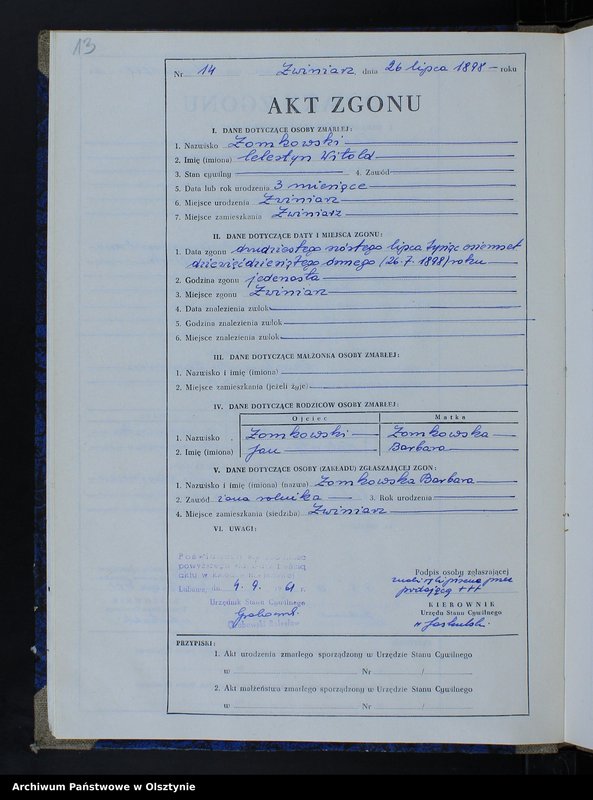 13
Nr 14 Zwiniarz, dnia 26 lipca 1898 - roku
AKT ZGONU
I. DANE DOTYCZĄCE OSOBY ZMARŁEJ:
1. Nazwisko Zomkowski
2. Imię (imiona) Celestyn Witold
3. Stan cywilny 4. Zawód
5. Data lub rok urodzenia 3 miesiące
6. Miejsce urodzenia Zwiniarz
7. Miejsce zamieszkania Zwiniarz
II. DANE DOTYCZĄCE DATY I MIEJSCA ZGONU:
1. Data zgonu dwudziestego szóstego lipca tysiąc osiemset
dziewięćdziesiątego ósmego (26.7.1898) roku
2. Godzina zgonu jedenasta
3. Miejsce zgonu Zwiniarz
4. Data znalezienia zwłok
5. Godzina znalezienia zwłok
6. Miejsce znalezienia zwłok
III. DANE DOTYCZĄCE MAŁŻONKA OSOBY ZMARŁEJ:
1. Nazwisko i imię (imiona)
2. Miejsce zamieszkania (jeżeli żyje)
IV. DANE DOTYCZĄCE RODZICÓW OSOBY ZMARŁEJ:
Ojciec Matka
1. Nazwisko . Zomkowski Zomkowska
2. Imię (imiona) Jan Barbara
V. DANE DOTYCZĄCE OSOBY (ZAKŁADU) ZGŁASZAJĄCEJ ZGON:
1. Nazwisko i imię (imiona) (nazwa) Zomkowska Barbara
2. Zawód żona rolnika 3. Rok urodzenia
4. Miejsce zamieszkania (siedziba) Zwiniarz
VI. UWAGI:
Poświadczam zgodność
powyższego
aktu w
Lubawa, dnia 4. 9. 1961 r.
Urzędnik Stanu Cywilnego
Grabowski
Podpis osoby zgłaszającej
znaki ręki pisma przez
+++
KIEROWNIK
Urzędu Stanu Cywilnego
PRZYPISKI:
1. Akt urodzenia zmarłego sporządzony w Urzędzie Stanu Cywilnego
w Nr /
2. Akt małżeństwa zmarłego sporządzony w Urzędzie Stanu Cywilnego
w Nr /
Archiwum Państwowe w Olsztynie